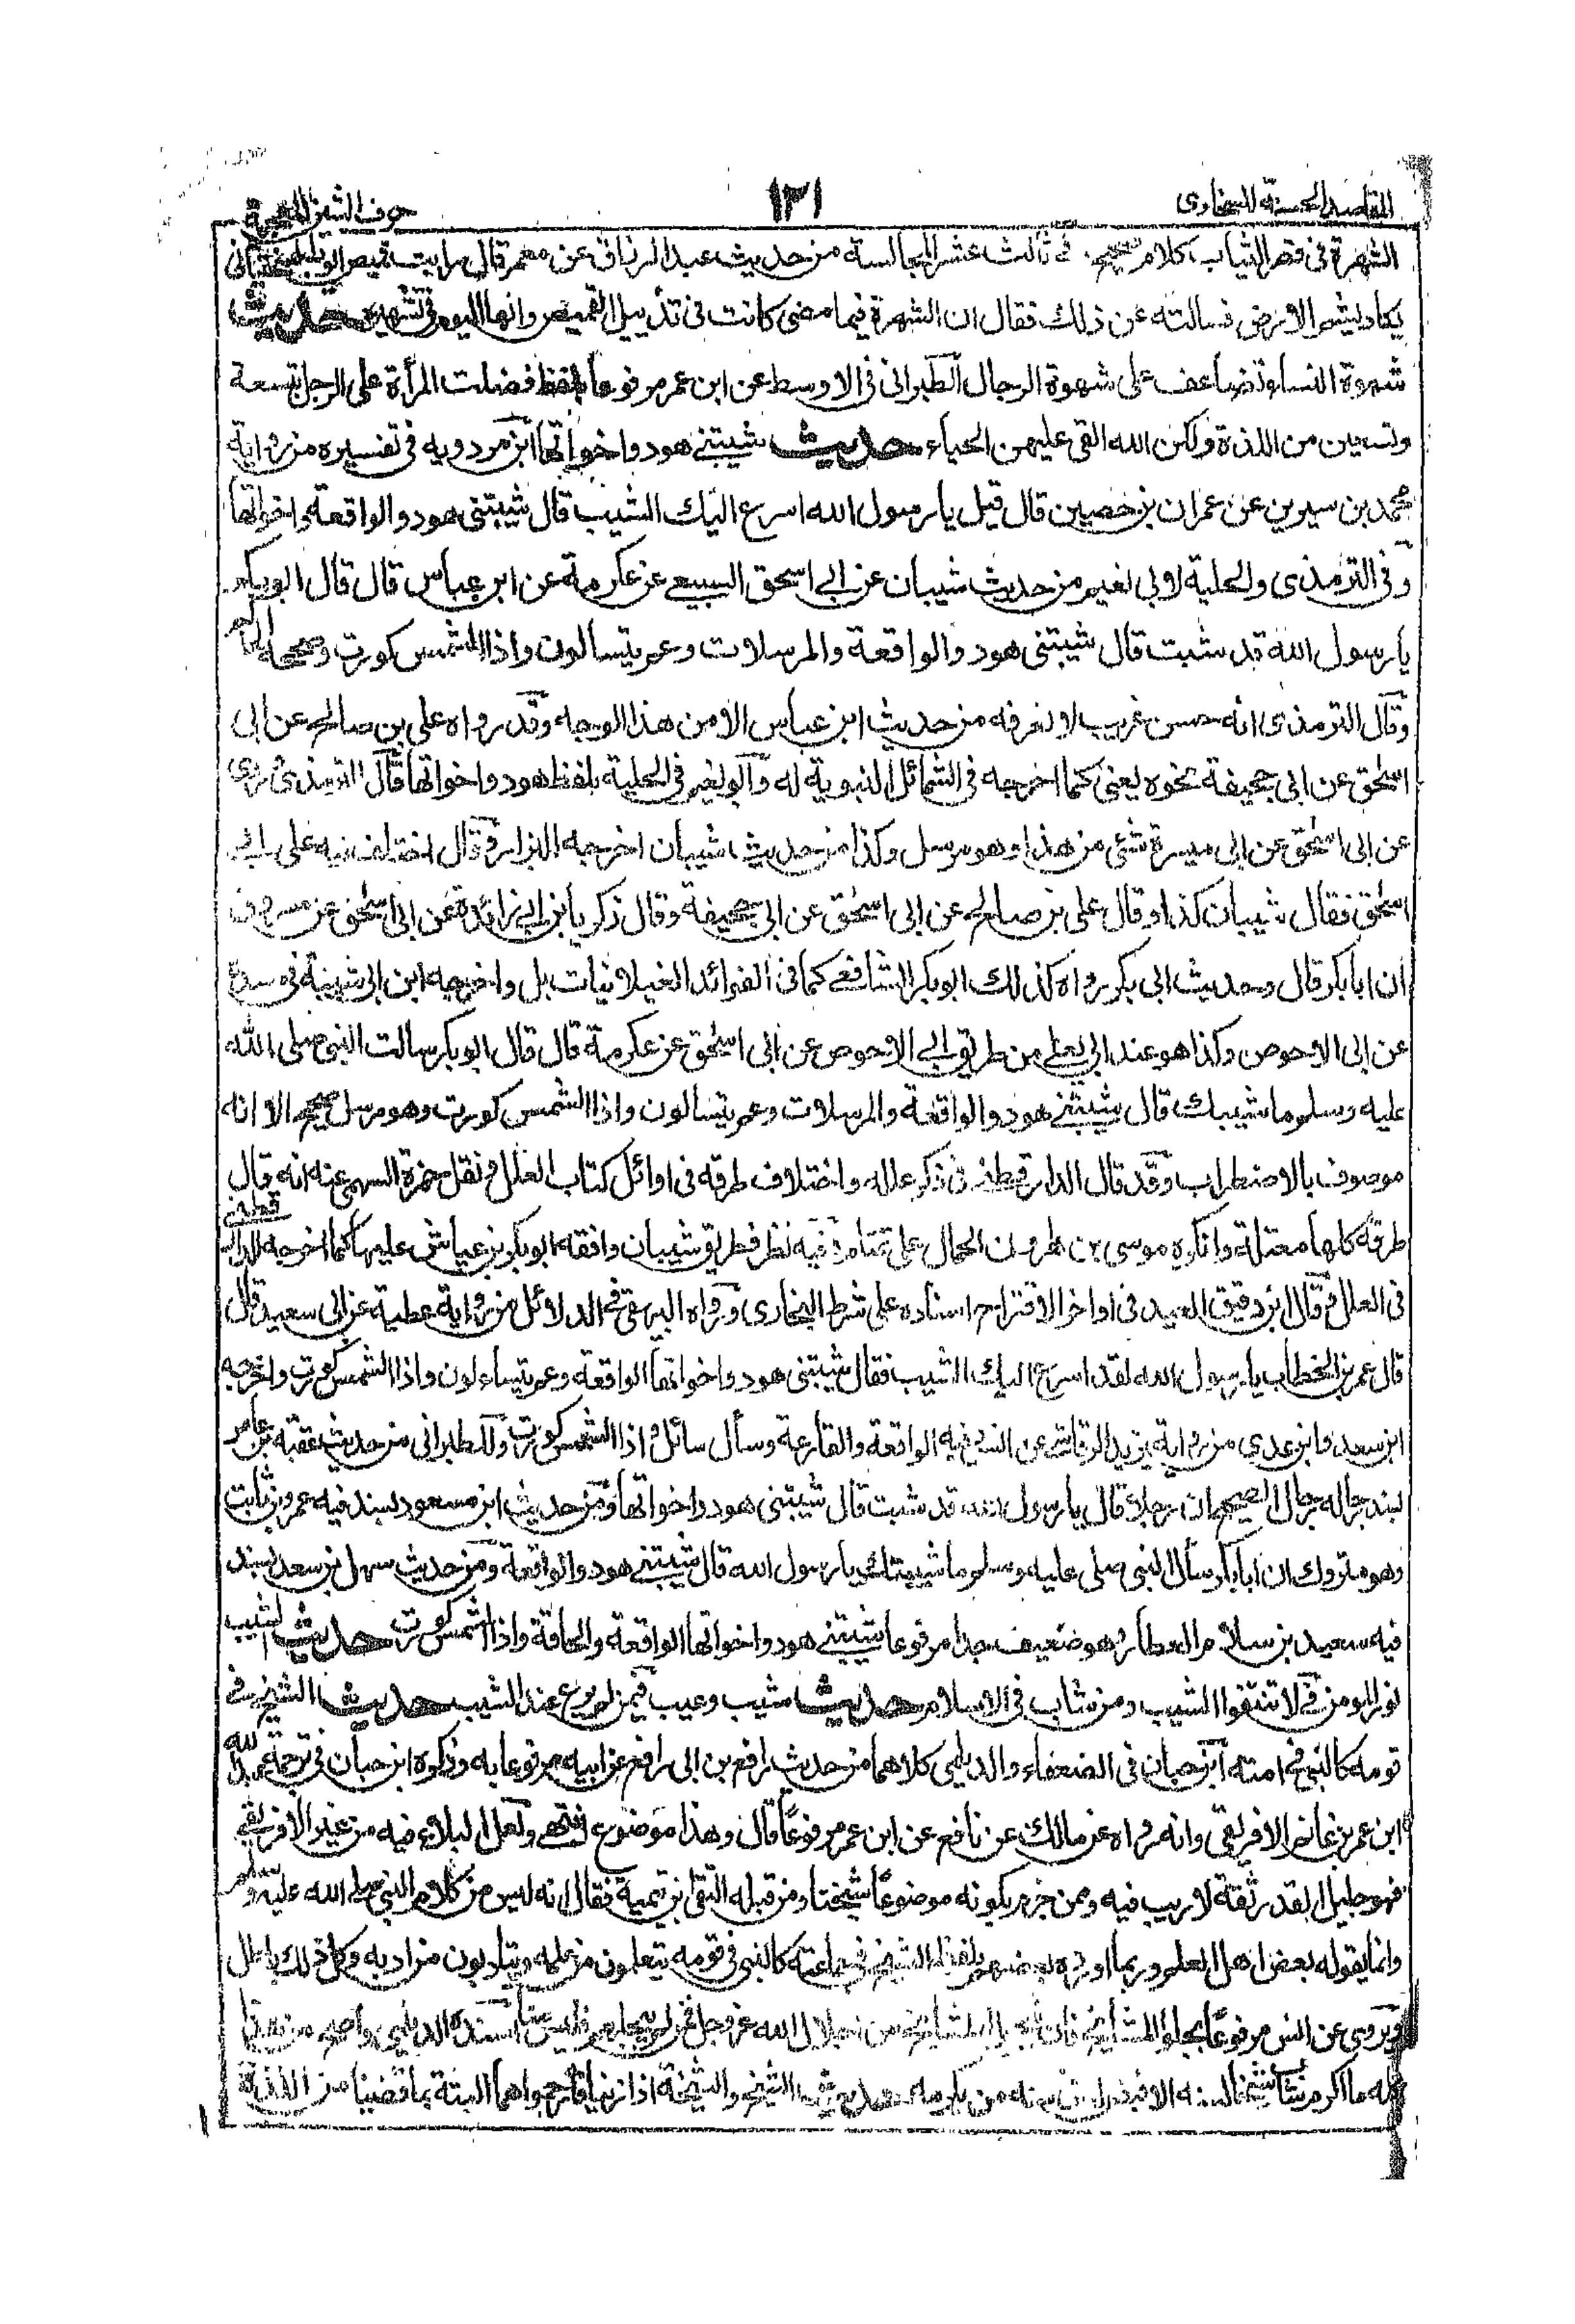 المقاصد الحسنة للسخاوى
١٣١
حرف الشين المعجمة
الشهرة فى قصر الثياب كلام صحيح فى ثالث عشر المجالسة من حديث عبد الرزاق عن معمر قال رايت قميص ايوب
يكاد يشم الارض فسالته عن ذلك فقال ان الشهرة فيما مضى كانت فى تذييل القميص وانها اليوم فى تشميره حديث
شهوة النساء تضاعف على شهوة الرجال الطبرانى فى الاوسط عن ابن عمر مرفوعا بلفظ فضلت المرأة على الرجل بتسعة
وتسعين من اللذة ولكن الله القى عليهن الحياء حديث شيبتنى هود واخواتها ابن مردويه فى تفسيره من رواية
محمد بن سيرين عن عمران بن حصين قال قيل يا رسول الله اسرع اليك الشيب قال شيبتنى هود والواقعة واخواتها
وفى الترمذى والحلية لابى نعيم من حديث شيبان عن ابى اسحق السبيعى عن عكرمة عن ابن عباس قال قال ابو بكر
يا رسول الله قد شبت قال شيبتنى هود والواقعة والمرسلات وعم يتسالون واذا الشمس كورت وصححه الحاكم
وقال الترمذى انه حسن غريب لا نعرفه من حديث ابن عباس الا من هذا الوجه وقد رواه على بن صالح عن ابى
اسحق عن ابى جحيفة نحوه يعنى كما اخرجه فى الشمائل النبوية له وابو نعيم فى الحلية بلفظ هود واخواتها قال الترمذى وروى
عن ابى اسحق عن ابى ميسرة شئ من هذا وهو مرسل وكذا من حديث شيبان اخرجه البزار وقال اختلف فيه على ابى
اسحق فقال شيبان كذا وقال على بن صالح عن ابى اسحق عن ابى جحيفة وقال زكريا بن ابى زائدة عن ابى اسحق عن مسروق
ان ابا بكر قال وحديث ابى بكر رواه كذلك ابو بكر الشافعى كما فى الفوائد الغيلانيات بل واخرجه ابن ابى شيبة فى مسنده
عن ابى الاحوص وكذا هو عند ابى يعلى من طريق ابى الاحوص عن ابى اسحق عن عكرمة قال قال ابو بكر سالت النبى صلى الله
عليه وسلم ما شيبك قال شيبتنى هود والواقعة والمرسلات وعم يتسالون واذا الشمس كورت وهو مرسل صحيح الا انه
موصوف بالاضطراب وقد قال الدارقطنى فى ذكر علله واختلاف طرقه فى اوائل كتاب العلل ونقل حمزة السهمى عنه انه قال
طرقه كلها معتلة وانكره موسى بن هارون الحمال على تمتام وفيه نظر فطريق شيبان وافقه ابو بكر بن عياش عليها كما اخرجه الدارقطنى
فى العلل وقال ابن دقيق العيد فى اواخر الاقتراح اسناده على شرط البخارى ورواه البيهقى فى الدلائل من رواية عطية عن ابى سعيد قال
قال عمر بن الخطاب يا رسول الله لقد اسرع اليك الشيب فقال شيبتنى هود واخواتها الواقعة وعم يتساءلون واذا الشمس كورت واخرجه
ابن سعد وابن عدى من رواية يزيد الرقاشى عن انس فيه الواقعة والقارعة وسأل سائل واذا الشمس كورت وللطبرانى من حديث عقبة بن عامر
بسند رجاله رجال الصحيح ان رجلا قال يا رسول الله قد شبت قال شيبتنى هود واخواتها ومن حديث ابن مسعود بسند فيه عمرو بن ثابت
وهو متروك ان ابا بكر سأل النبى صلى عليه وسلم ما شيبك يا رسول الله قال شيبتنى هود والواقعة ومن حديث سهل بن سعد بسند
فيه سعيد بن سلام العطار وهو ضعيف جدا مرفوعا شيبتنى هود واخواتها الواقعة والحاقة واذا الشمس كورت حديث الشيب
نور المومن فى لا تنتفوا الشيب ومن شاب فى الاسلام حديث شيب وعيب فيمن لم يرع عند الشيب حديث الشيخ فى
قومه كالنبى فى امته ابن حبان فى الضعفاء والديلمى كلاهما من حديث رافع بن ابى رافع عن ابيه مرفوعا به وذكره ابن حبان فى ترجمة عبد الله
ابن عمر بن غانم الافريقى وانه رواه عن مالك عن نافع عن ابن عمر مرفوعا قال وهذا موضوع انتهى ولعل البلاء فيه من غير الافريقى
فهو جليل القدر ثقة لا ريب فيه وممن جزم بكونه موضوعا شيخنا ومن قبله التقى بن تيمية فقال انه ليس من كلام النبى صلى الله عليه وسلم
وانما يقوله بعض اهل العلم وربما اورده بعضهم بلفظ الشيخ فى جماعته كالنبى فى قومه يتعلمون من علمه ويتادبون من ادبه وكل ذلك باطل
ويروى عن انس مرفوعا بجلوا المشايخ فان تبجيل المشايخ من اجلال الله عز وجل فمن لم يبجلهم فليس منا اسنده الديلمى واصح من هذا
كله ما اكرم شاب شيخا لسنه الا قيض الله له فى سنه من يكرمه حديث الشيخ والشيخة اذا زنيا فارجموهما البتة بما قضيا من اللذة